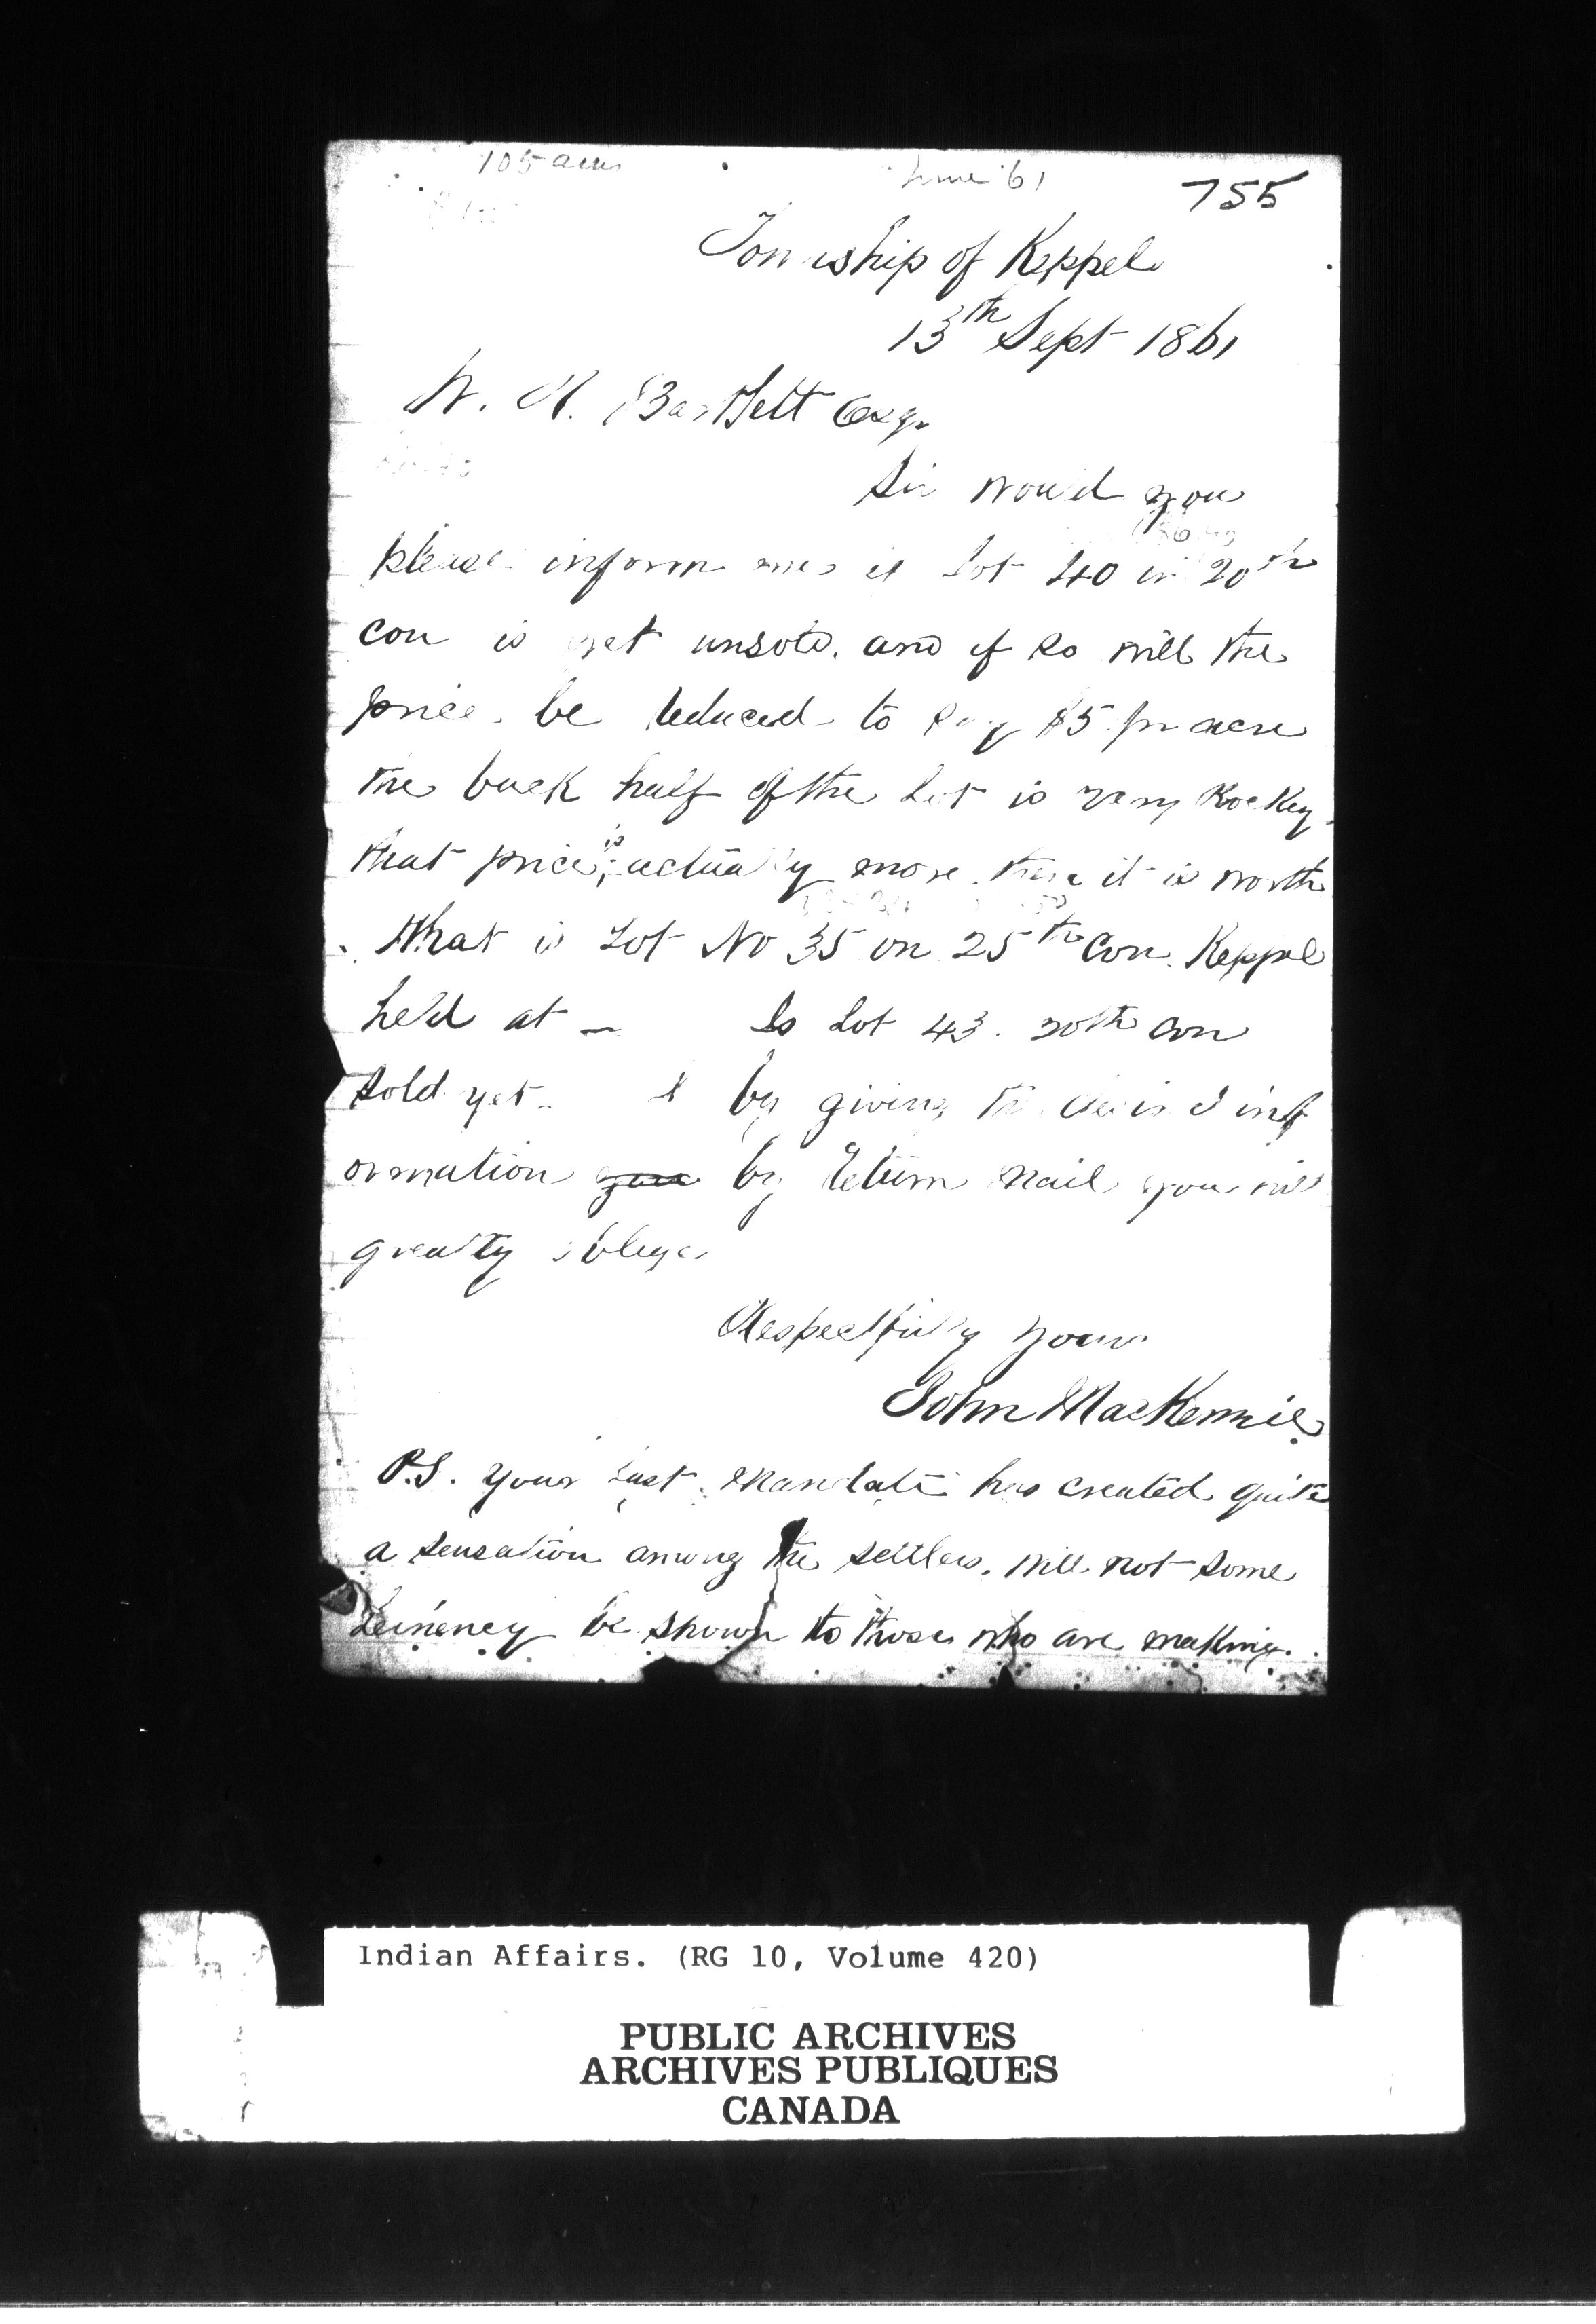 105 acres
June 61
755
Township of Keppel
13th Sept 1861
W. R. Bartlett Esqr
Sir would you
please inform me if Lot 40 in 20th
con is yet unsold. and if so will the
price be reduced to say $5 pr acre
the back half of the Lot is very Rockey
that price is actually more than it is worth
What is Lot No 35 on 25th Con. Keppel
held at — Is Lot 43. 20th con
sold yet. & by giving the desired inf
ormation you by return mail you will
greatly oblige
Respectfully yours
John MacKenzie
P.S. your last Mandate has created quite
a sensation among the settlers. will not some
Leineney be shown to those who are making
Indian Affairs. (RG 10, Volume 420)
PUBLIC ARCHIVES
ARCHIVES PUBLIQUES
CANADA